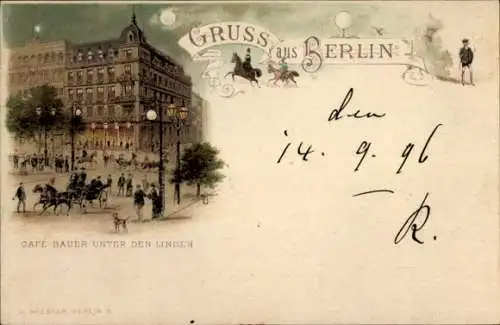 GRUSS aus BERLIN
den
14. 9. 96
R.
CAFÉ BAUER UNTER DEN LINDEN
BERLIN